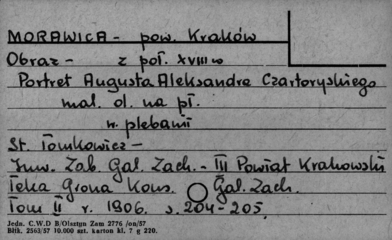 MORAWICA - pow. Kraków
Obraz - z poł. XVIII w
Portret Augusta Aleksandra Czartoryskiego
mal. ol. na pł.
w. plebanii
St. Tomkowicz -
Inw. Zab. Gal. Zach. - III Powiat Krakowski
Teka Grona Kons. Gal. Zach.
Tom II r. 1906. s. 204-205.
Jedn. C.W.D B/Olsztyn Zam 2776 /on/57
Błtk. 2563/57 10.000 szt. karton kl. 7 g 220.